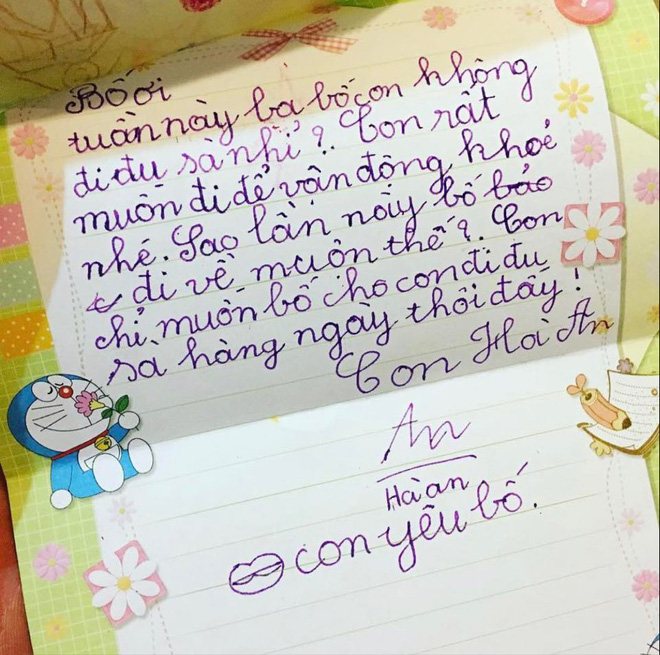 Bố ơi
tuần này ba bố con không
đi đu sà nhỉ? Con rất
muốn đi để vân đông khoẻ
nhé. Sao lần này bố bảo
đi về muôn thế?. Con
chỉ muốn bố cho con đi đu
sà hàng ngày thôi đấy!
Con Hà An
An
Hà an
con yêu bố.